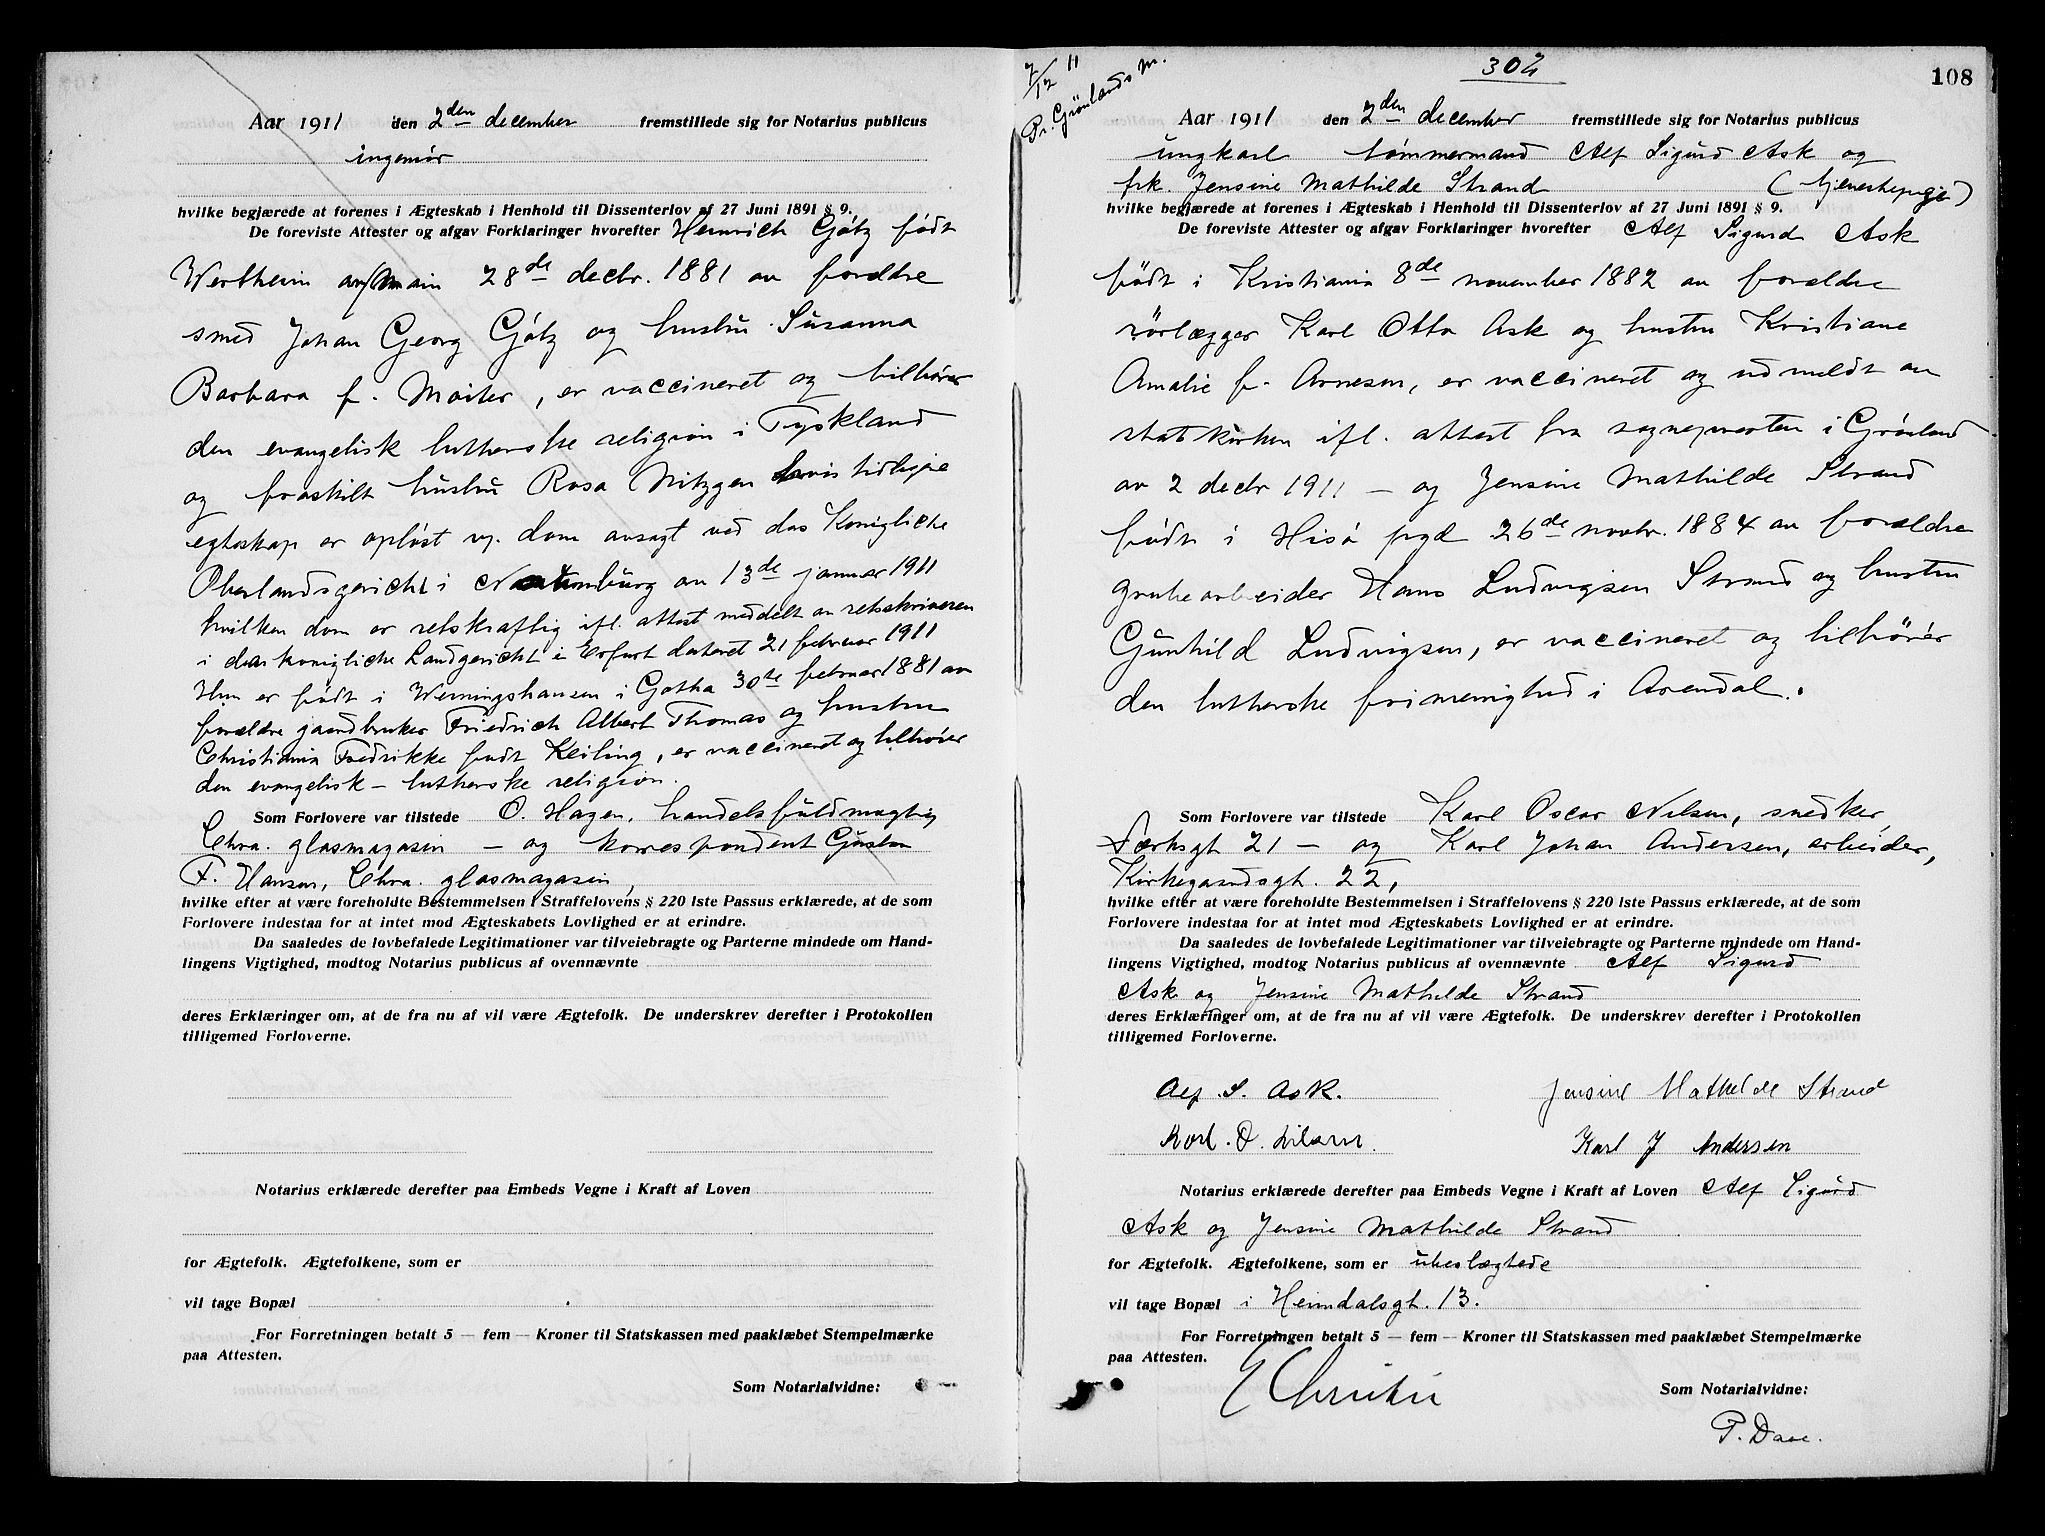 Aar 1911 den 2den december fremstillede sig for Notarius publicus
ingeniør
hvilke begjærede at forenes i Ægteskab i Henhold til Dissenterlov af 27 Juni 1891 § 9.
De foreviste Attester og afgav Forklaringer hvorefter Heinrich Götz født
Wertheim a/Main 28de decbr. 1881 av forældre
smed Johan Georg Götz og hustru Susanna
Barbara f. Moiter, er vaccineret og tilhører
den evangelisk lutherske religion i Tyskland
og fraskilt hustru Rosa Nitzgen hvis tidligere
egteskap er opløst v. dom avsagt ved das Konigliche
Oberlandsgericht i Naumburg av 13de januar 1911
hvilken dom er retskraftig ifl. attest meddelt av retsskriveren
i das konigliche Landgericht i Erfurt dateret 21 februar 1911
Hun er født i Werningshausen i Gotha 30te februar 1881 av
forældre gaardbruker Friedrich Albert Thomas og hustru
Christiania Fredrikke født Keiling, er vaccineret og tilhører
den evangelisk – lutherske religion.
Som Forlovere var tilstede O. Hagen, handelsfuldmægtig
Chra. glasmagasin – og korrespondent Gustav
F. Hansen, Chra. glasmagasin,
hvilke efter at være foreholdte Bestemmelsen i Straffelovens § 220 1ste Passus erklærede, at de som
Forlovere indestaa for at intet mod Ægteskabets Lovlighed er at erindre.
Da saaledes de lovbefalede Legitimationer var tilveiebragte og Parterne mindede om Hand-
lingens Vigtighed, modtog Notarius publicus af ovennævnte
deres Erklæringer om, at de fra nu af vil være Ægtefolk. De underskrev derefter i Protokollen
tilligemed Forloverne.
Notarius erklærede derefter paa Embeds Vegne i Kraft af Loven
for Ægtefolk. Ægtefolkene, som er
vil tage Bopæl
For Forretningen betalt 5 — fem — Kroner til Statskassen med paaklæbet Stempelmærke
paa Attesten.
Som Notarialvidne:
7/12 11
Pr. Grønlands m.
302
108
Aar 1911 den 2den december fremstillede sig for Notarius publicus
ungkarl tømmermand Alf Sigurd Ask og
frk. Jensine Mathilde Strand (tjenestepige)
hvilke begjærede at forenes i Ægteskab i Henhold til Dissenterlov af 27 Juni 1891 § 9.
De foreviste Attester og afgav Forklaringer hvorefter Alf Sigurd Ask
født i Kristiania 8de november 1882 av forældre
rørlægger Karl Otto Ask og hustru Kristiane
Amalie f. Arnesen, er vaccineret og utmeldt av
statskirken ifl. attest fra sognepresten i Grønland
av 2 decbr 1911 – og Jensine Mathilde Strand
født i Hisø pgd 26de novbr. 1884 av forældre
grubearbeider Hans Ludvigsen Strand og hustru
Gunhild Ludvigsen, er vaccineret og tilhører
den lutherske frimenighed i Arendal.
Som Forlovere var tilstede Karl Oscar Nilsen, snedker
Lærkegt 21 – og Karl Johan Andersen, arbeider,
Kirkegaardsgt. 22,
hvilke efter at være foreholdte Bestemmelsen i Straffelovens § 220 1ste Passus erklærede, at de som
Forlovere indestaa for at intet mod Ægteskabets Lovlighed er at erindre.
Da saaledes de lovbefalede Legitimationer var tilveiebragte og Parterne mindede om Hand-
lingens Vigtighed, modtog Notarius publicus af ovennævnte Alf Sigurd
Ask og Jensine Mathilde Strand
deres Erklæringer om, at de fra nu af vil være Ægtefolk. De underskrev derefter i Protokollen
tilligemed Forloverne.
Alf. S. Ask. Jensine Mathilde Strand
Karl. O. Nilsen. Karl J Andersen
Notarius erklærede derefter paa Embeds Vegne i Kraft af Loven Alf Sigurd
Ask og Jensine Mathilde Strand
for Ægtefolk. Ægtefolkene, som er ubeslægtede
vil tage Bopæl i Heimdalsgt. 13.
For Forretningen betalt 5 — fem — Kroner til Statskassen med paaklæbet Stempelmærke
paa Attesten.
E Christie
Som Notarialvidne:
P. Daae.